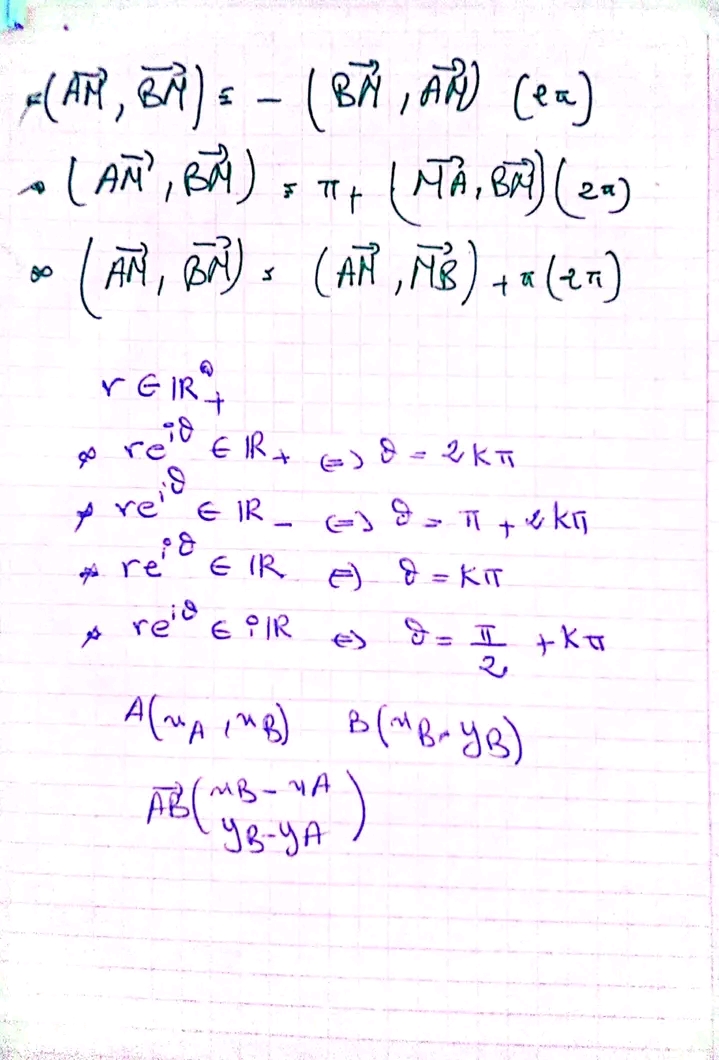 (AM⃗, BM⃗) ≡ − (BM⃗, AM⃗) (2π)
(AM⃗, BM⃗) ≡ π + (MA⃗, BM⃗) (2π)
(AM⃗, BM⃗) ≡ (AM⃗, MB⃗) + π (2π)
r ∈ ℝ*₊
re^{iθ} ∈ ℝ₊ ⇔ θ = 2kπ
re^{iθ} ∈ ℝ₋ ⇔ θ = π + 2kπ
re^{iθ} ∈ ℝ ⇔ θ = kπ
re^{iθ} ∈ iℝ ⇔ θ = π/2 + kπ
A(x_A, x_B) B(x_B, y_B)
AB⃗ (x_B − x_A
y_B − y_A)